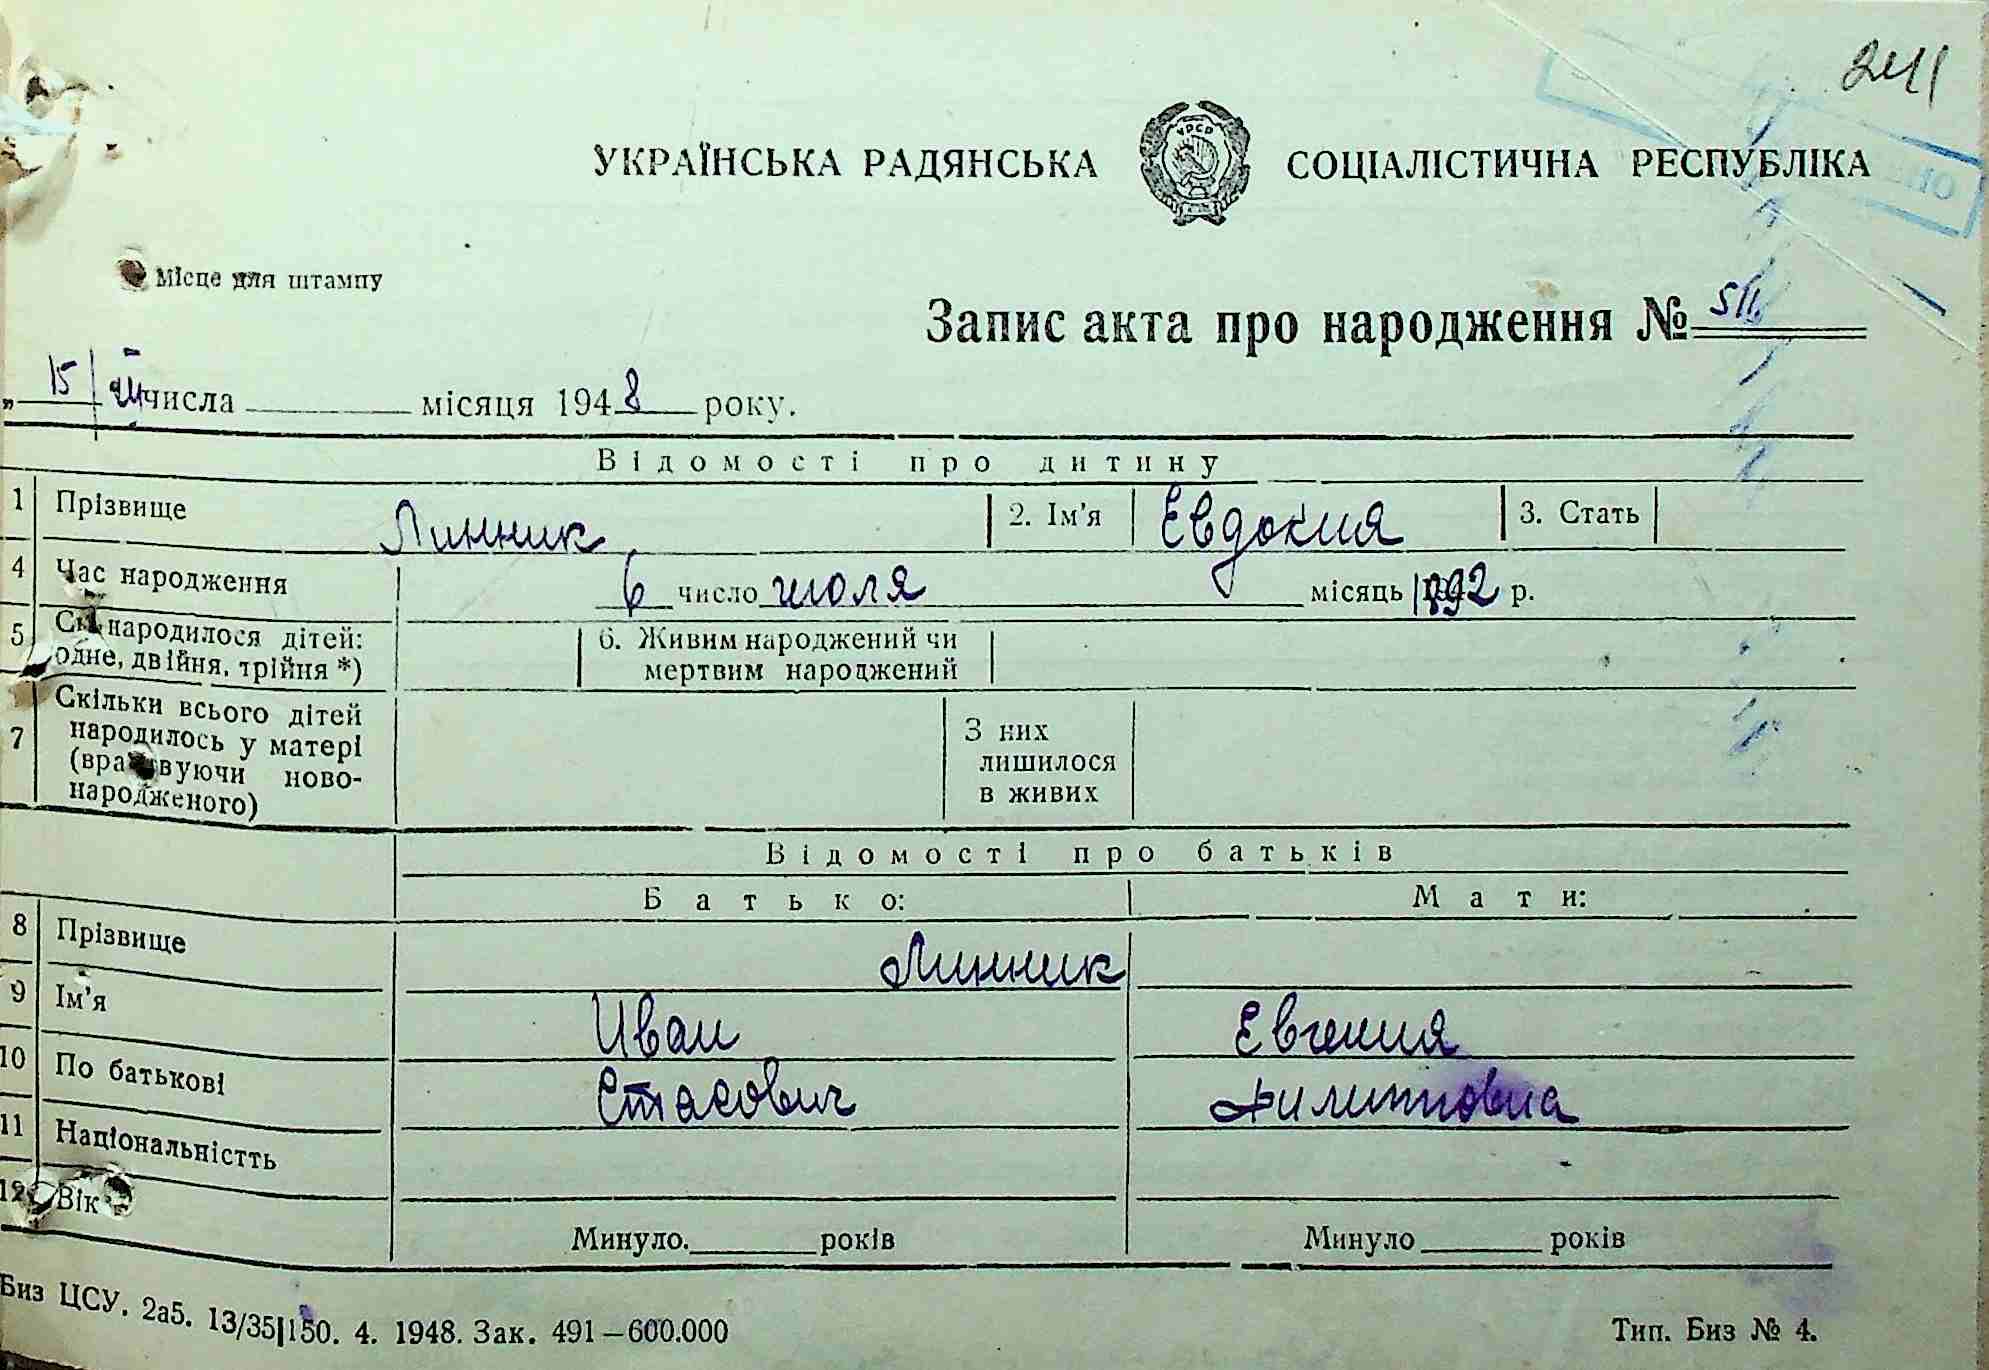 241
УКРАЇНСЬКА РАДЯНСЬКА СОЦІАЛІСТИЧНА РЕСПУБЛІКА
УРСР
Місце для штампу
Запис акта про народження №
„ 15 числа місяця 1948 року.
Відомості про дитину
1 Прізвище Линник 2. Ім'я Евдокия 3. Стать
4 Час народження 6 число июля місяць 1892 р.
5 Ск. народилося дітей: 6. Живим народжений чи
одне, двійня, трійня *) мертвим народжений
7 Скільки всього дітей З них
народилось у матері лишилося
(враховуючи ново- в живих
народженого)
Відомості про батьків
Батько: Мати:
8 Прізвище Линник
9 Ім'я Иван Евгения
10 По батькові Стасович Филипповна
11 Національністть
12 Вік
Минуло. років Минуло років
Биз ЦСУ. 2а5. 13/35|150. 4. 1948. Зак. 491—600.000 Тип. Биз № 4.